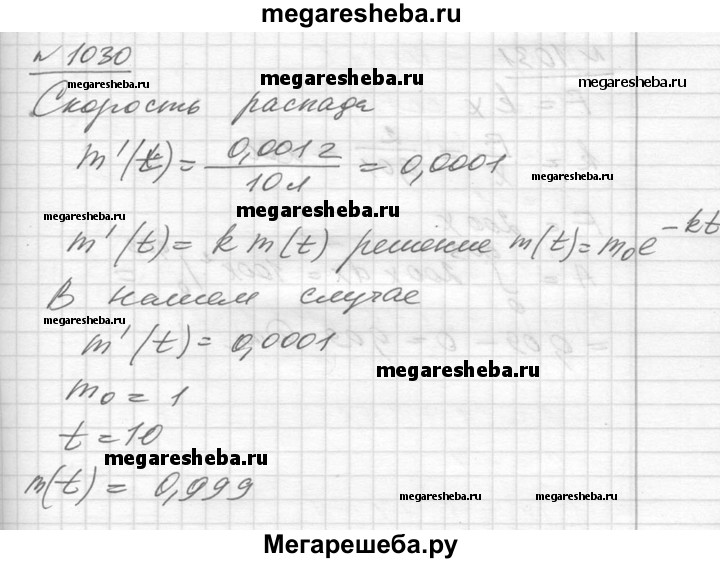 megaresheba.ru
№ 1030
megaresheba.ru
megaresheba.ru
megaresheba.ru
Скорость распада
m'(t) = 0,001 г / 10 л = 0,0001
megaresheba.ru
megaresheba.ru
megaresheba.ru
m'(t) = k m(t) решение m(t) = m₀e^{-kt}
В нашем случае
megaresheba.ru
m'(t) = 0,0001
megaresheba.ru
m₀ = 1
t = 10
megaresheba.ru
m(t) = 0,999
megaresheba.ru
megaresheba.ru
Мегарешеба.ру